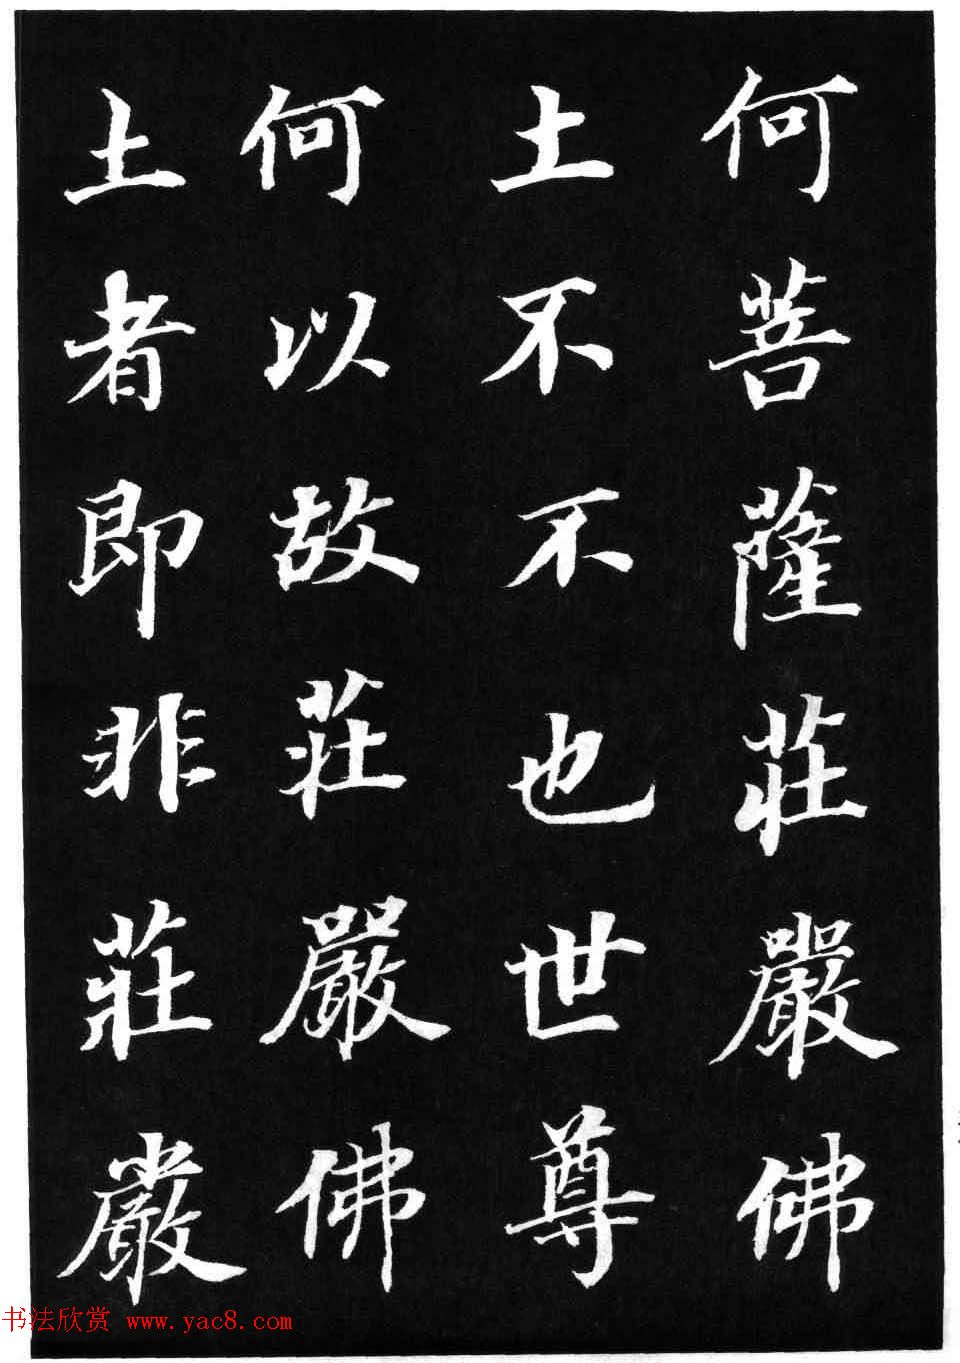 何菩薩莊嚴佛
土不不也世尊
何以故莊嚴佛
土者即非莊嚴
书法欣赏 www.yac8.com